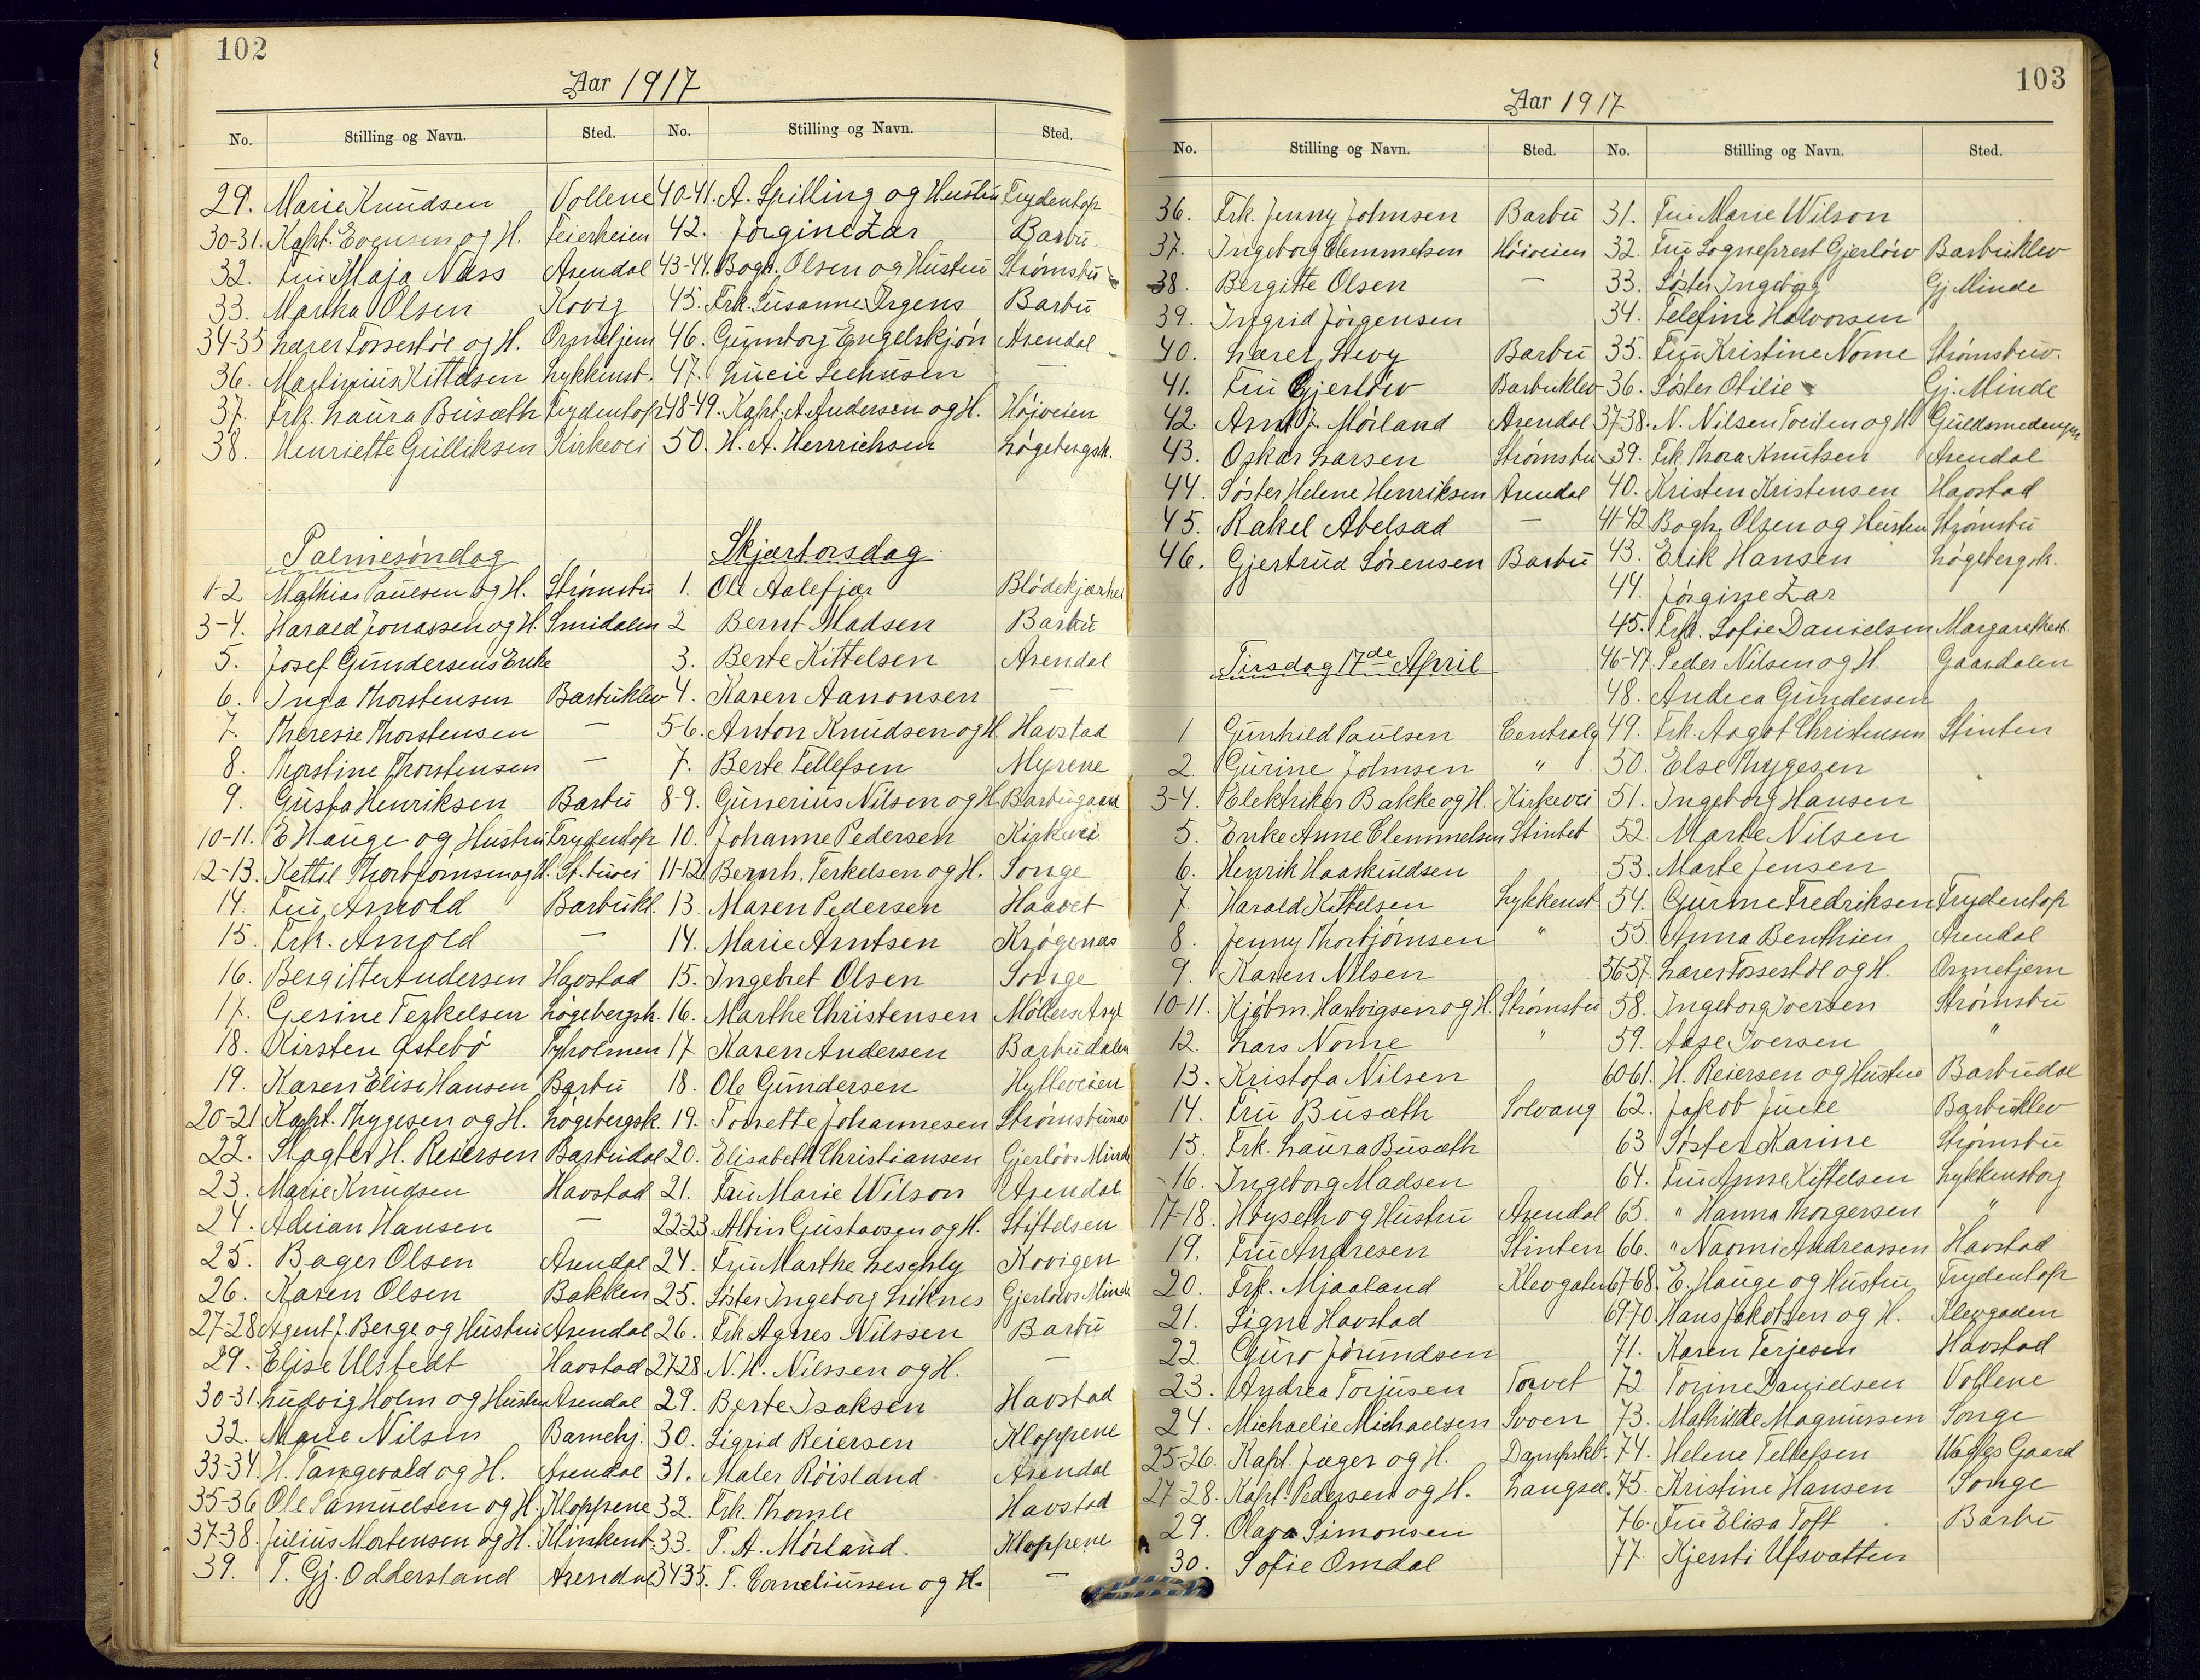 102
Aar 1917
No. Stilling og Navn. Sted.
29. Marie Knudsen Vollene
30-31. Kapt. Evensen og H. Feierheien
32. Fru Maja Næss Arendal
33. Martha Olsen Kovig
34-35 Lærer Fossestøl og H. Ormetjern
36. Martinius Kittelsen Lykkenst.
37. Frk. Laura Busæth Frydentop
38. Henriette Gulliksen Kirkevei
Palmesøndag
1-2 Mathias Paulsen og H. Strømsbu
3-4. Harald Jonassen og H. Smidalen
5. Josef Gundersens Enke
6. Inga Thorstensen Barbuklev
7. Theresie Thorstensen —
8. Thorstine Thorstensen —
9. Gusta Henriksen Barbu
10-11. E Hauge og Hustru Frydentop
12-13. Kettil Thorbjørnsen og H. St. buvei
14. Fru Arnold Barbukl.
15. Frk. Arnold —
16. Bergitte Andersen Havstad
17. Gesine Terkelsen Løgebergsk.
18. Kirsten Østebø Tyholmen
19. Karen Elise Hansen Barbu
20-21 Kapt. Thygesen og H. Løgebergsk.
22. Slagter H. Reiersen Barbudal
23. Marie Knudsen Havstad
24. Adrian Hansen —
25. Bager Olsen Arendal
26. Karen Olsen Bakken
27-28 Agent J. Berge og Hustru Arendal
29. Elise Ulstedt Havstad
30-31. Ludvig Holm og Hustru Arendal
32. Marie Nilsen Barnehj.
33-34. H. Tangevald og H. Arendal
35-36 Ole Samuelsen og H. Kloppene
37-38. Julius Mortensen og H. Klinkenb.
39. T. Gj. Odderstand Arendal
No. Stilling og Navn. Sted.
40-41. A. Spilling og Hustru Frydentop
42. Jørgine Zar Barbu
43-44. Bogh. Olsen og Hustru Strømsbu
45. Frk. Susanne Irgens Barbu
46. Gunborg Engelskjøn Arendal
47. Lucie Seehusen —
48-49. Kapt. A. Andersen og H. Højveien
50. H. A. Henrichsen Løgebergsk.
Skjærtorsdag
1. Ole Aalefjær Blødekjærhei
2 Bernt Madsen Barbu
3. Berte Kittelsen Arendal
4. Karen Aanonsen —
5-6. Anton Knudsen og H. Havstad
7. Berte Tellefsen Myrene
8-9. Gunerius Nilsen og H. Barbugaard
10. Johanne Pedersen Kirkevei
11-12 Bernh. Terkelsen og H. Songe
13. Maren Pedersen Haavet
14. Marie Arntsen Krøgenæs
15. Ingebret Olsen Songe
16. Marthe Christensen Møllers Asyl
17 Karen Andersen Barbudalen
18. Ole Gundersen Hylleveien
19. Tonette Johannesen Strømsbunæs
20. Elisabeth Christiansen Gjerløvs Minde
21. Fru Marie Wilson Arendal
22-23. Albin Gustavsen og H. Stiftelsen
24. Fru Marthe Leschly Kovigen
25. Søster Ingeborg Liknes Gjerløvs Minde
26. Frk Agnes Nilssen Barbu
27-28 N. H. Nilssen og H. —
29. Berte Isaksen Havstad
30. Sigrid Reiersen Kloppene
31. Maler Røisland Arendal
32. Frk. Thomle Havstad
33. T. A. Mørland Kloppene
34-35. T. Corneliussen og H. —
103
Aar 1917
No. Stilling og Navn. Sted.
36. Frk. Jenny Johnsen Barbu
37. Ingeborg Clemmetsen Høiveien
38. Bergitte Olsen —
39. Ingrid Jørgensen
40. Lærer Levy Barbu
41. Fru Gjerløw Barbuklev
42. Arnt J. Mørland Arendal
43. Oskar Larsen Strømsbu
44. Søster Helene Henriksen Arendal
45. Rakel Abelsæd —
46. Gjertrud Sørensen Barbu
Tirsdag 17de April
1 Gunhild Paulsen Centralg
2. Gurine Johnsen "
3-4. Elektriker Bakke og H. Kirkevei
5. Enke Anne Clemmetsen Stintet
6. Henrik Haaskuldsen
7. Harald Kittelsen Lykkenst.
8. Jenny Thorbjørnsen "
9. Karen Nilsen
10-11. Kjøbm. Hartvigsen og H. Strømsbu
12. Lars Nome "
13. Kristofa Nilsen
14. Fru Busæth Solvang
15. Frk. Laura Busæth
16. Ingeborg Madsen
17-18. Høyseth og Hustru Arendal
19. Fru Andresen Stinten
20. Frk. Mjaaland Klevgaten
21. Signe Havstad
22. Guro Jørundsen
23. Andrea Torjusen Torvet
24. Michaelie Michaelsen Svoen
25-26. Kapt. Jæger og H. Dampskb.
27-28. Kapt. Pedersen og H. Langsæ.
29. Olava Simonsen
30. Sofie Omdal
No. Stilling og Navn. Sted.
31. Fru Marie Wilson
32. Fru Sogneprest Gjerløw Barbuklev
33. Søster Ingeborg Gj. Minde
34. Telefine Halvorsen
35. Fru Kristine Nome Strømsbuv.
36. Søster Otilie Gj. Minde
37-38. N. Nilsen Tveiten og H Guldsmedengen
39. Frk. Thora Knutsen Arendal
40. Kristen Kristensen Havstad
41-42 Bogh. Olsen og Hustru Strømsbu
43. Erik Hansen Løgebergsk.
44. Jørgine Zar
45. Frk. Sofie Danielsen Margarethest.
46-47. Peder Nilsen og H. Gaasdalen
48. Andrea Gundersen
49. Frk. Aagot Christensen Stinten
50. Else Thygesen
51. Ingeborg Hansen
52. Marte Nilsen
53. Marte Jensen
54. Gurine Fredriksen Frydentop
55. Anna Benthien Arendal
56-57. Lærer Fossestøl og H. Ormetjern
58. Ingeborg Iversen Strømsbu
59. Aase Iversen "
60-61. H. Reiersen og Hustru Barbudal
62. Jakob Juell Barbuklev
63 Søster Karine Strømsbu
64. Fru Anne Kittelsen Lykkensborg
65. " Hanna Thorgersen "
66. " Naomi Andreassen Havstad
67-68. E. Hauge og Hustru Frydentop
69-70. Hans Jakobsen og H. Klevgaden
71. Karen Terjesen Havstad
72 Torine Danielsen Vollene
73. Mathilde Magnussen Songe
74. Helene Tellefsen Wægles Gaard
75. Kristine Hansen Songe
76. Fru Elisa Toft Barbu
77. Kjersti Ufsvatten